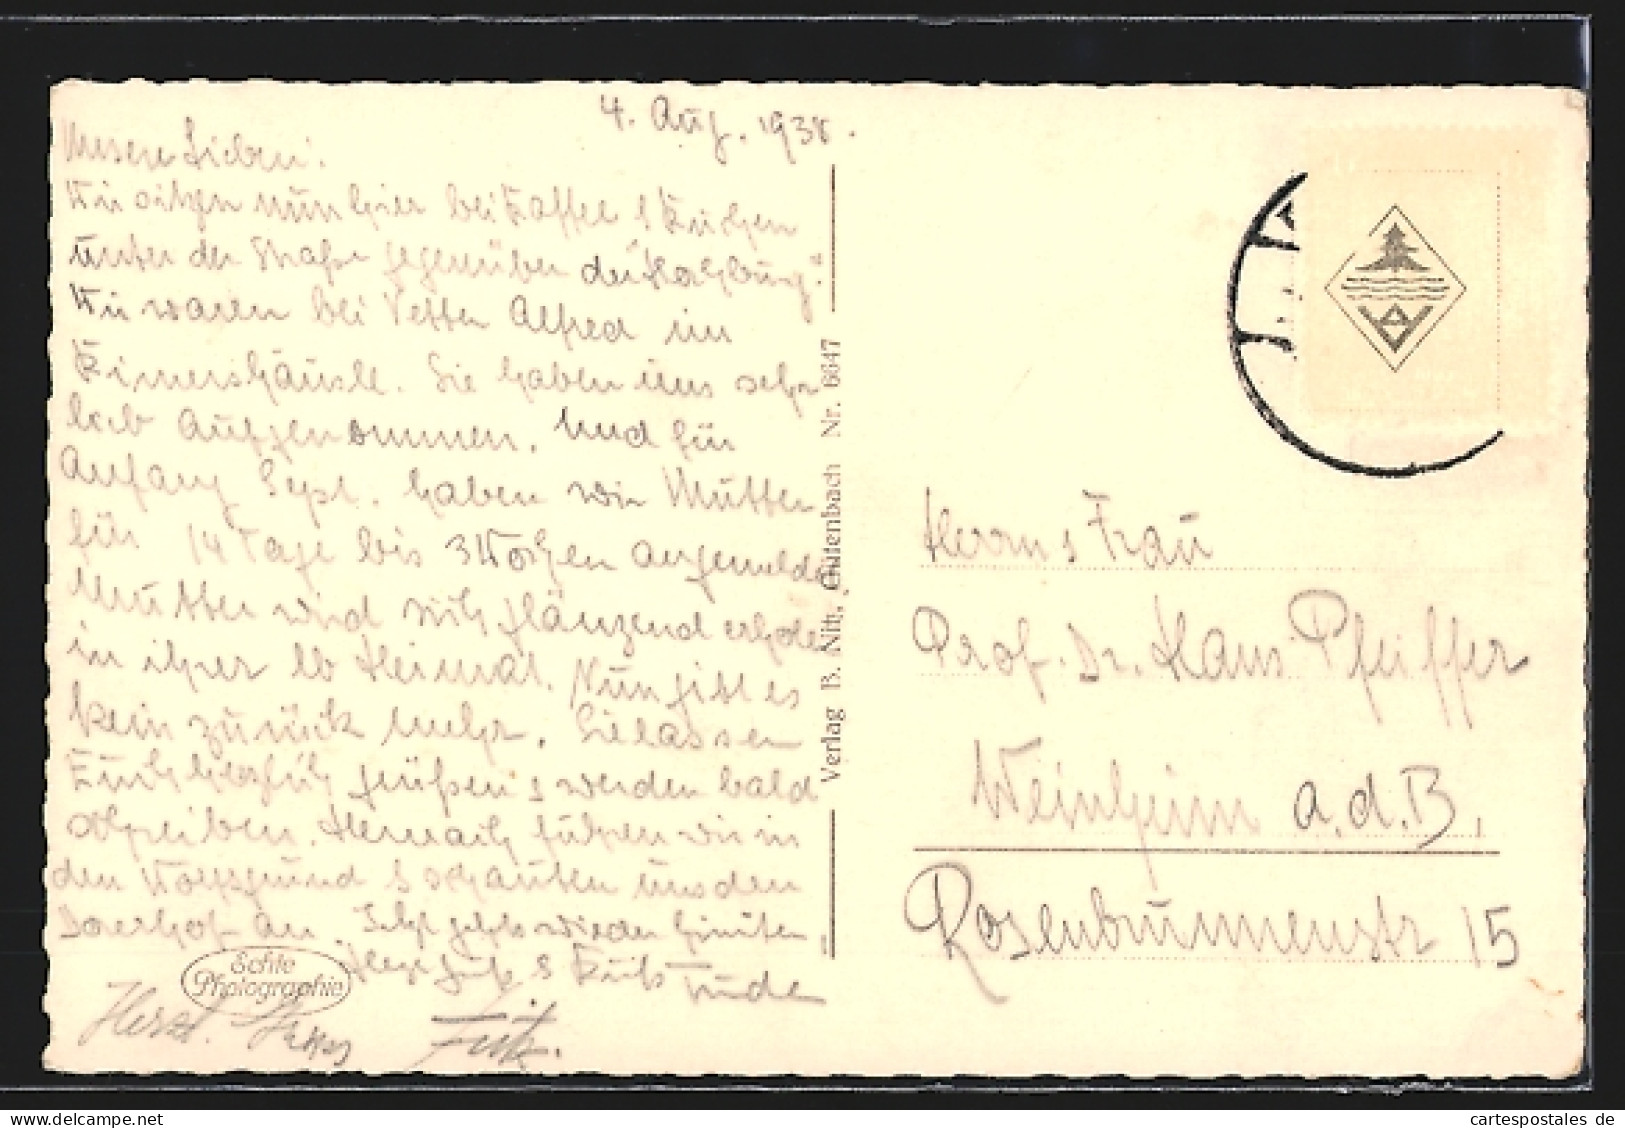 4. Aug. 1938.
Unsere Lieben!
Wir sitzen nun hier bei Kaffee & Kuchen
unter der Straße gegenüber der
Wir waren bei Vetter Alfred im
Sie haben uns sehr
lieb aufgenommen. Und für
Anfang Sept. haben wir Mutter
für 14 Tage bis 3 Wochen angemeldet
Mutter wird sich glänzend erholen
in ihrer lb Heimat. Nun gibt es
kein zurück mehr. Sie lassen
Euch herzlich grüßen & werden bald
schreiben. Hernach fuhren wir in
den & schauten uns den
an. Jetzt gehts wieder
Herzl. Grüße & Kuß Trude
Herzl. Fritz.
Echte
Photographie
Verlag B. Nitz, Gütenbach Nr. 6647
Herrn & Frau
Prof. Dr. Hans Pfeiffer
Weinheim a.d.B.
Rosenbrunnenstr 15
cartespostales de